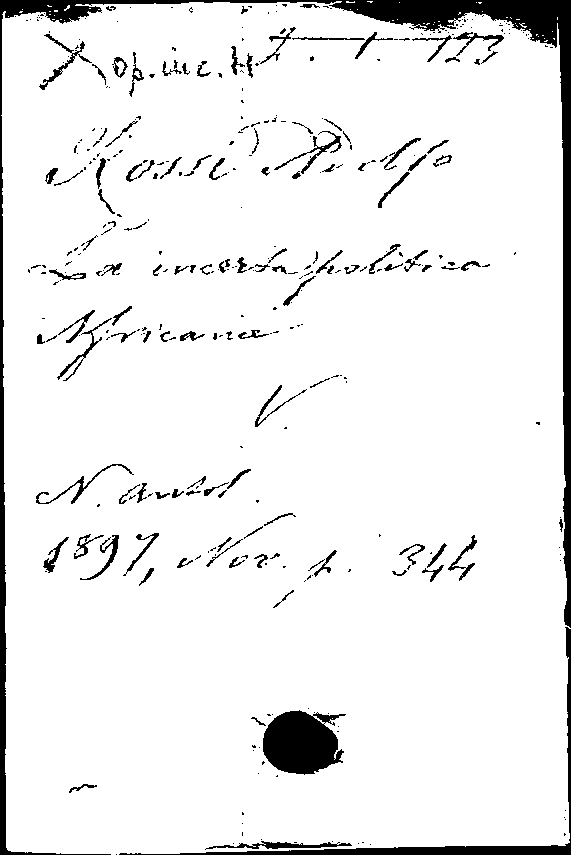 op. inc. H
Rossi Adolfo
La incerta politica
Africana
V.
N. Antol.
1897, Nov. p. 344